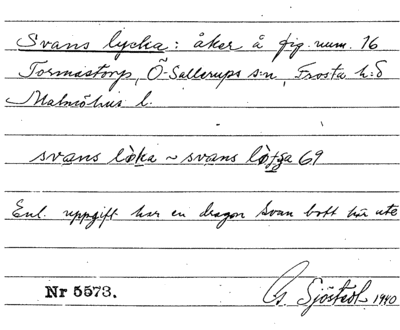 Svans lycka: åker å fig. num. 16
Tormastorp, Ö-Sallerups s:n, Frosta h:d
Malmöhus l.
svans lòka ~ svans lòfga 69
Enl. uppgift har en dragon Svan bott här ute
Nr 5573.
G. Sjöstedt 1940